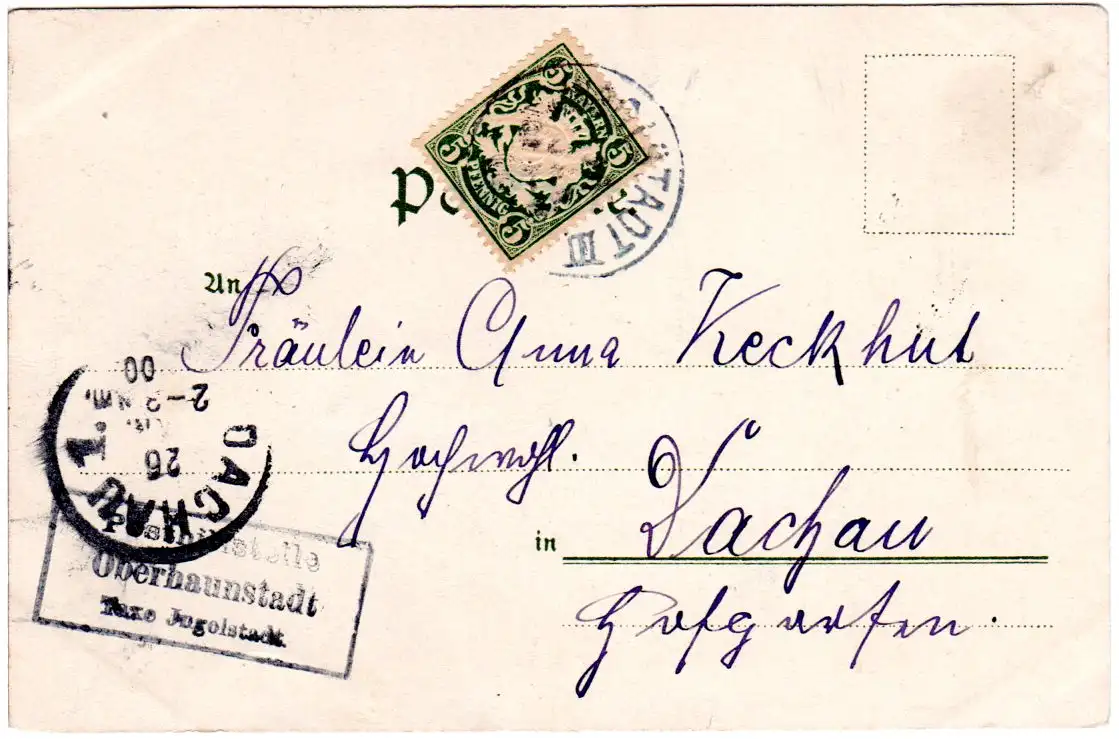 5
BAYERN
5
5
PFENNIG
5
STADT III
An
Fräulein Anna Keckhut
Hochwohl.
in Dachau
Hofgarten.
DACHAU 1.
26
2-3 Nm.
00
Posthilfstelle
Oberhaunstadt
Taxe Ingolstadt